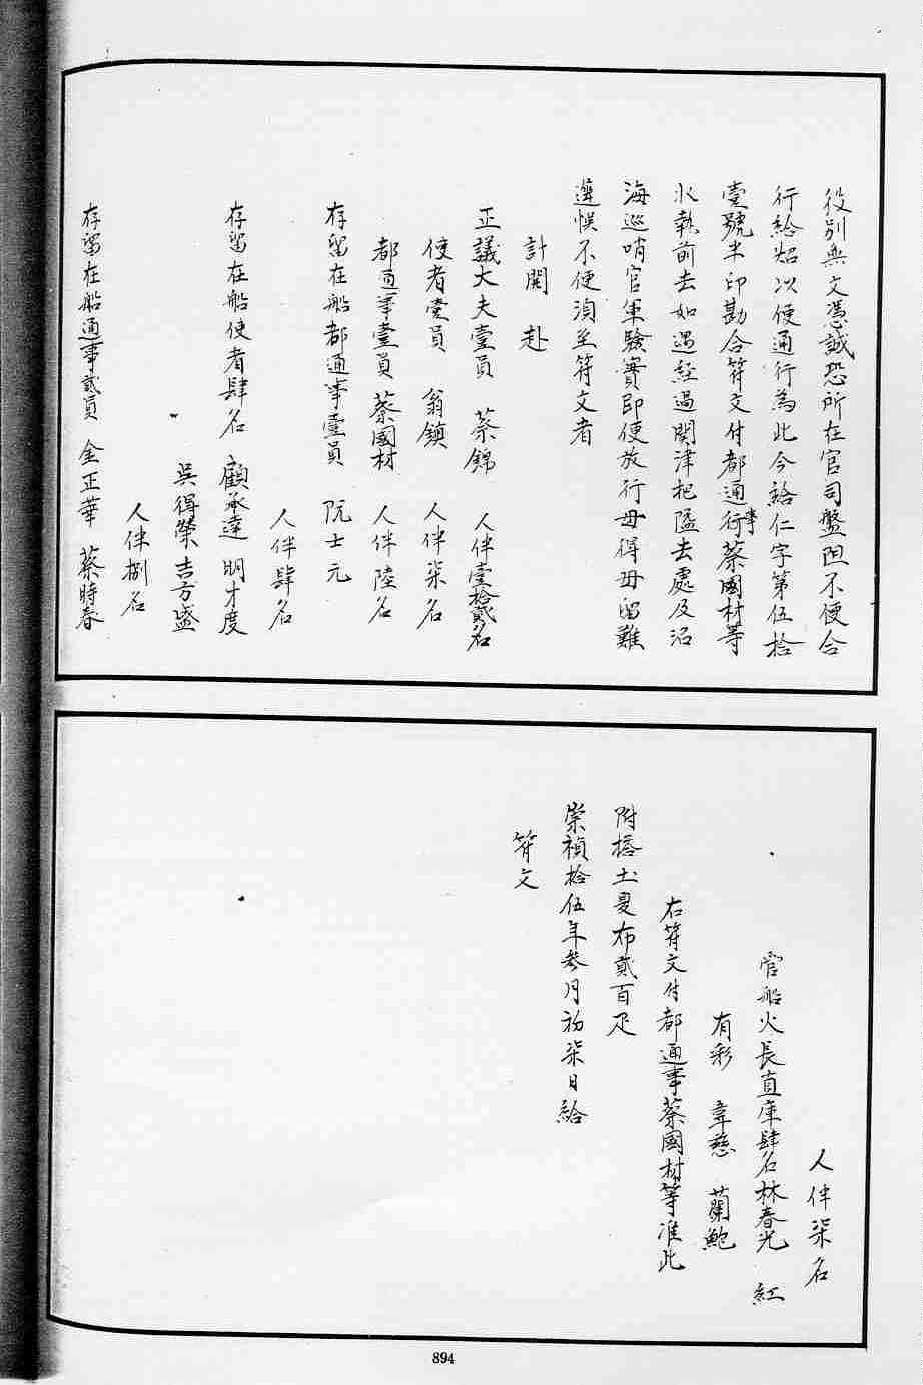 役別無文憑誠恐所在官司盤阻不便合
行給炤以便通行為此今給仁字第伍拾
壹號半印勘合符文付都通事蔡國材等
收執前去如遇經過関津把隘去處及沿
海巡哨官軍驗實即便放行毋得毋留難
遲悞不便湏至符文者
計開　赴
正議大夫壹員　蔡錦　人伴壹拾貳名
使者壹員　翁鎮　人伴柒名
都通事壹員　蔡國材　人伴陸名
存留在船都通事壹員　阮士元
人伴肆名
存留在船使者肆名　顧承達　明才度
吳得榮　吉方盛
人伴捌名
存留在船通事貳員　金正華　蔡時春
人伴柒名
官船火長直庫肆名　林春光　紅
有彩　韋慈　蘭鮑
右符文付都通事蔡國材等准此
附搭土夏布貳百疋
崇禎拾伍年參月初柒日給
符文
894